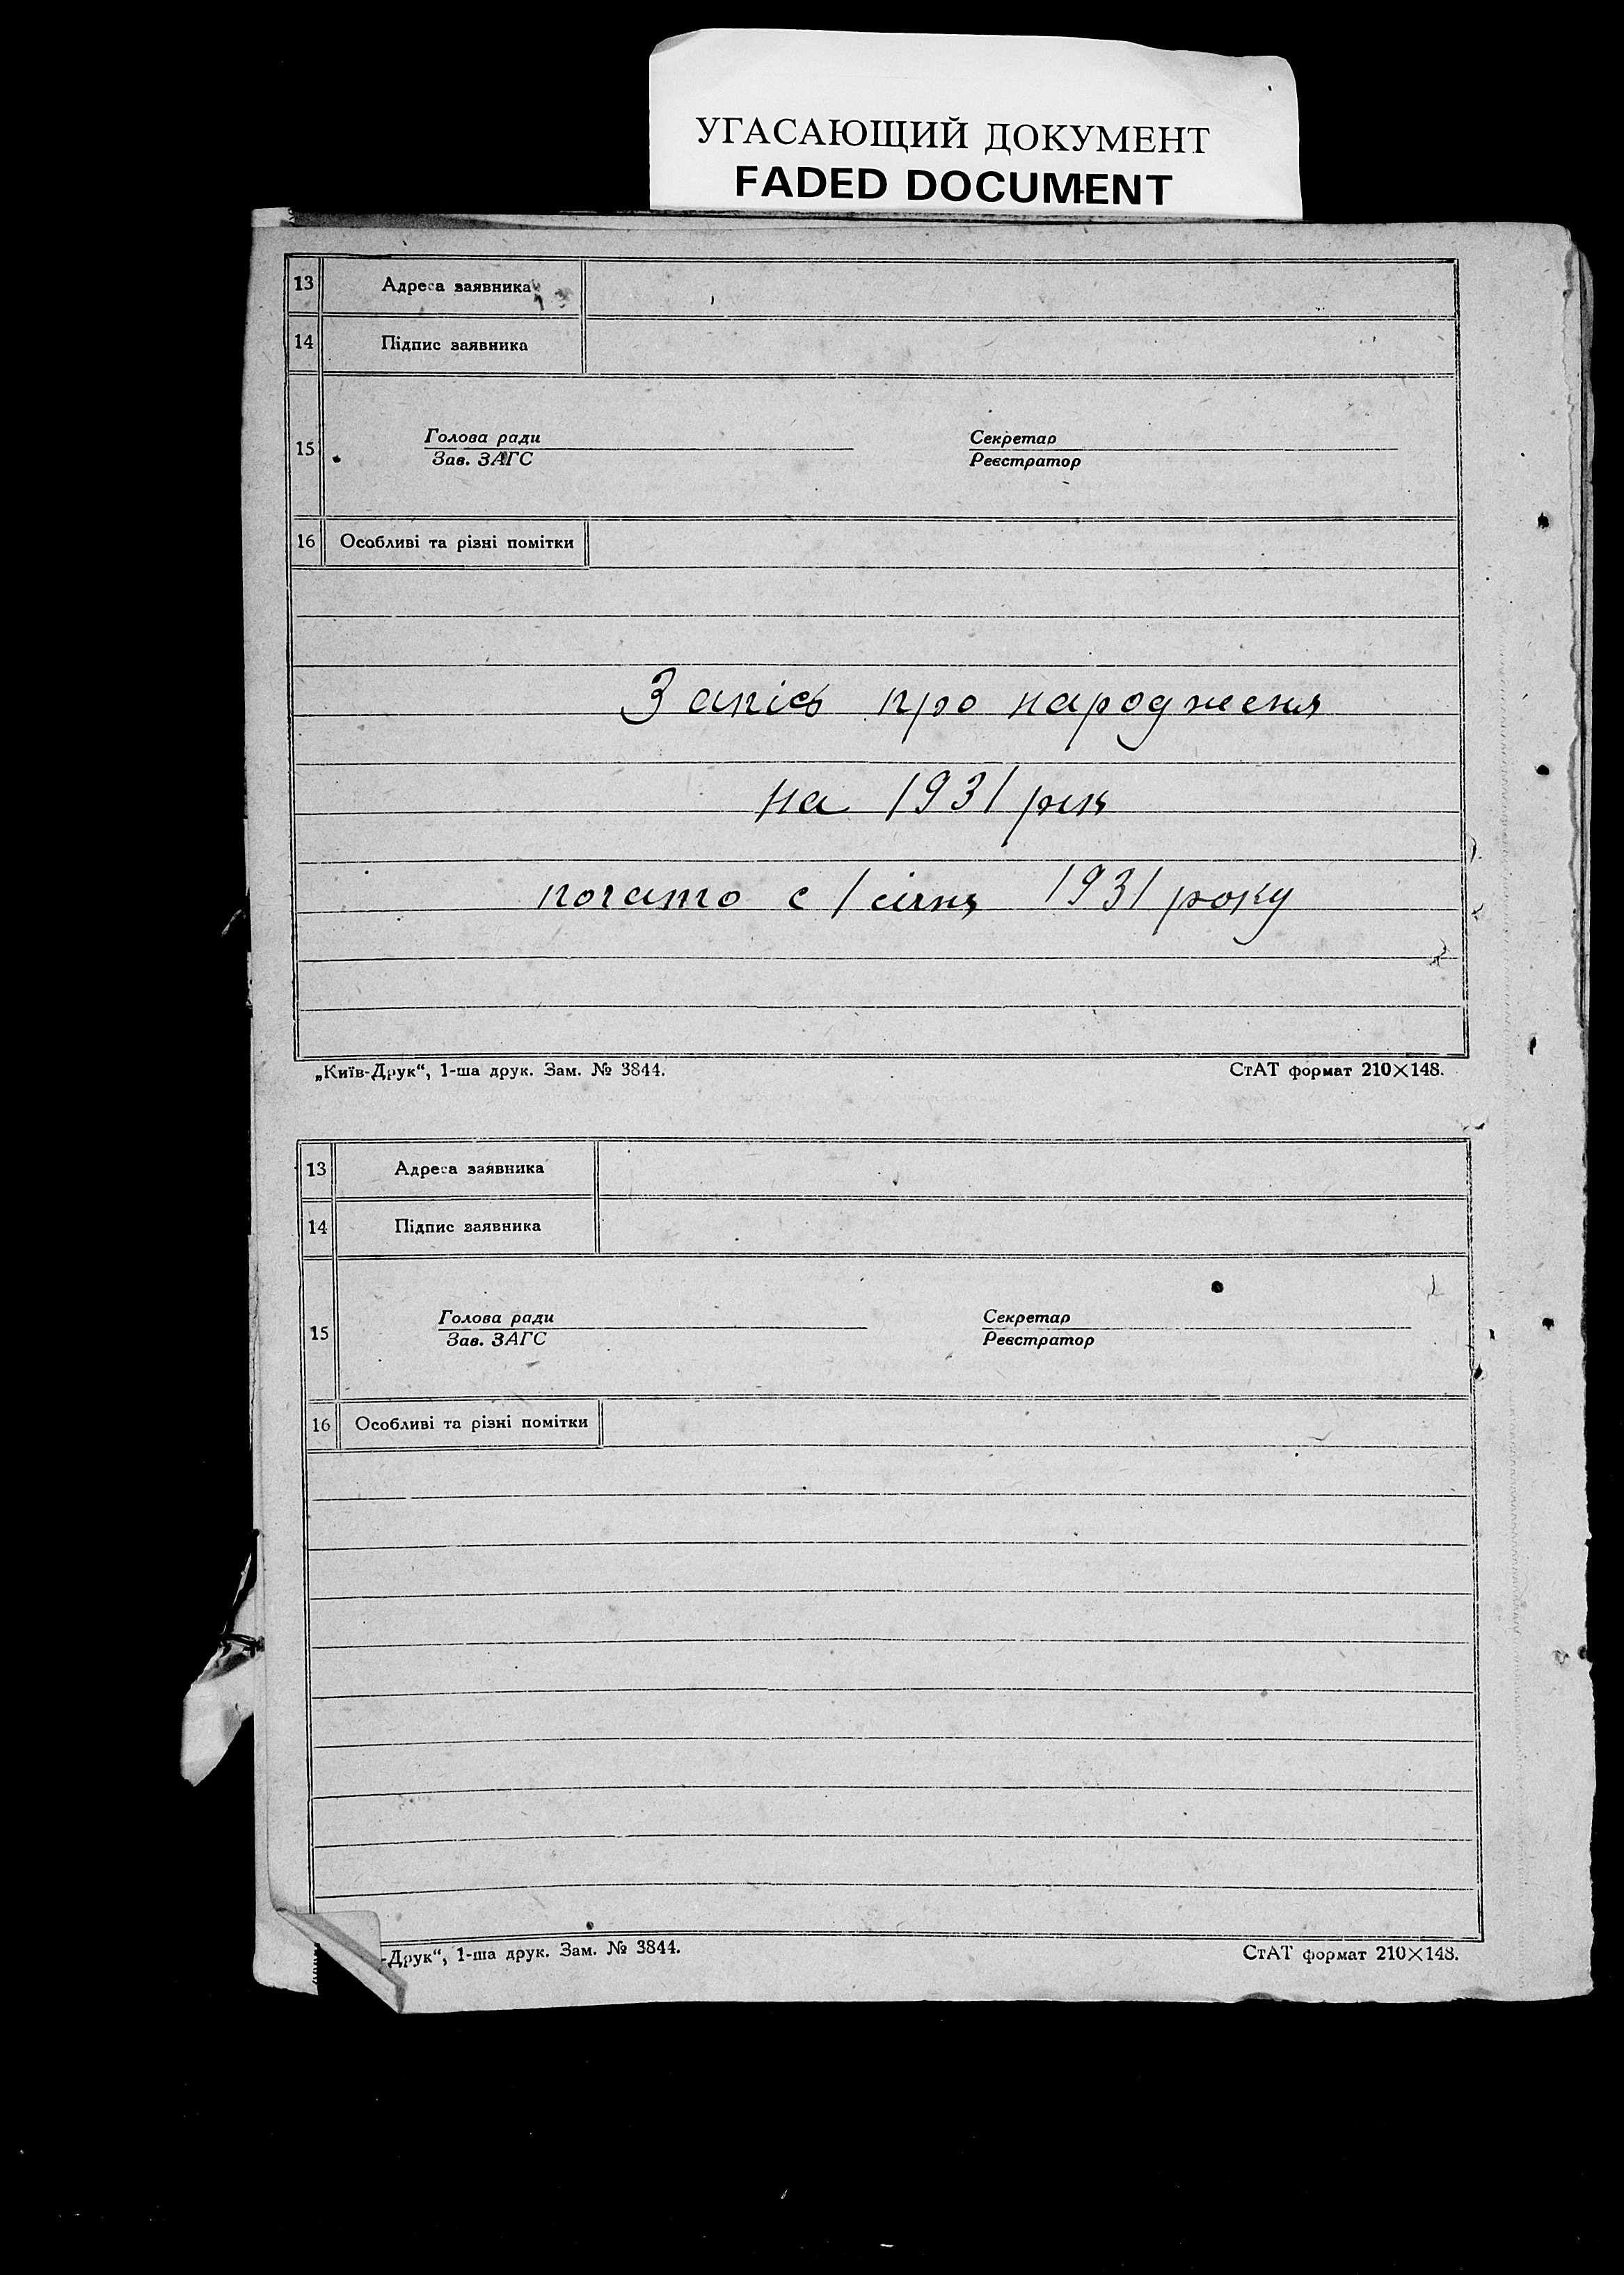 УГАСАЮЩИЙ ДОКУМЕНТ
FADED DOCUMENT
13 Адреса заявника
14 Підпис заявника
15 Голова ради Секретар
Зав. ЗАГС Реєстратор
16 Особливі та різні помітки
Запісь про народженя
на 1931 рік
почато с 1 січня 1931 року
„Київ-Друк“, 1-ша друк. Зам. № 3844. СтАТ формат 210×148.
13 Адреса заявника
14 Підпис заявника
15 Голова ради Секретар
Зав. ЗАГС Реєстратор
16 Особливі та різні помітки
-Друк“, 1-ша друк. Зам. № 3844. СтАТ формат 210×148.